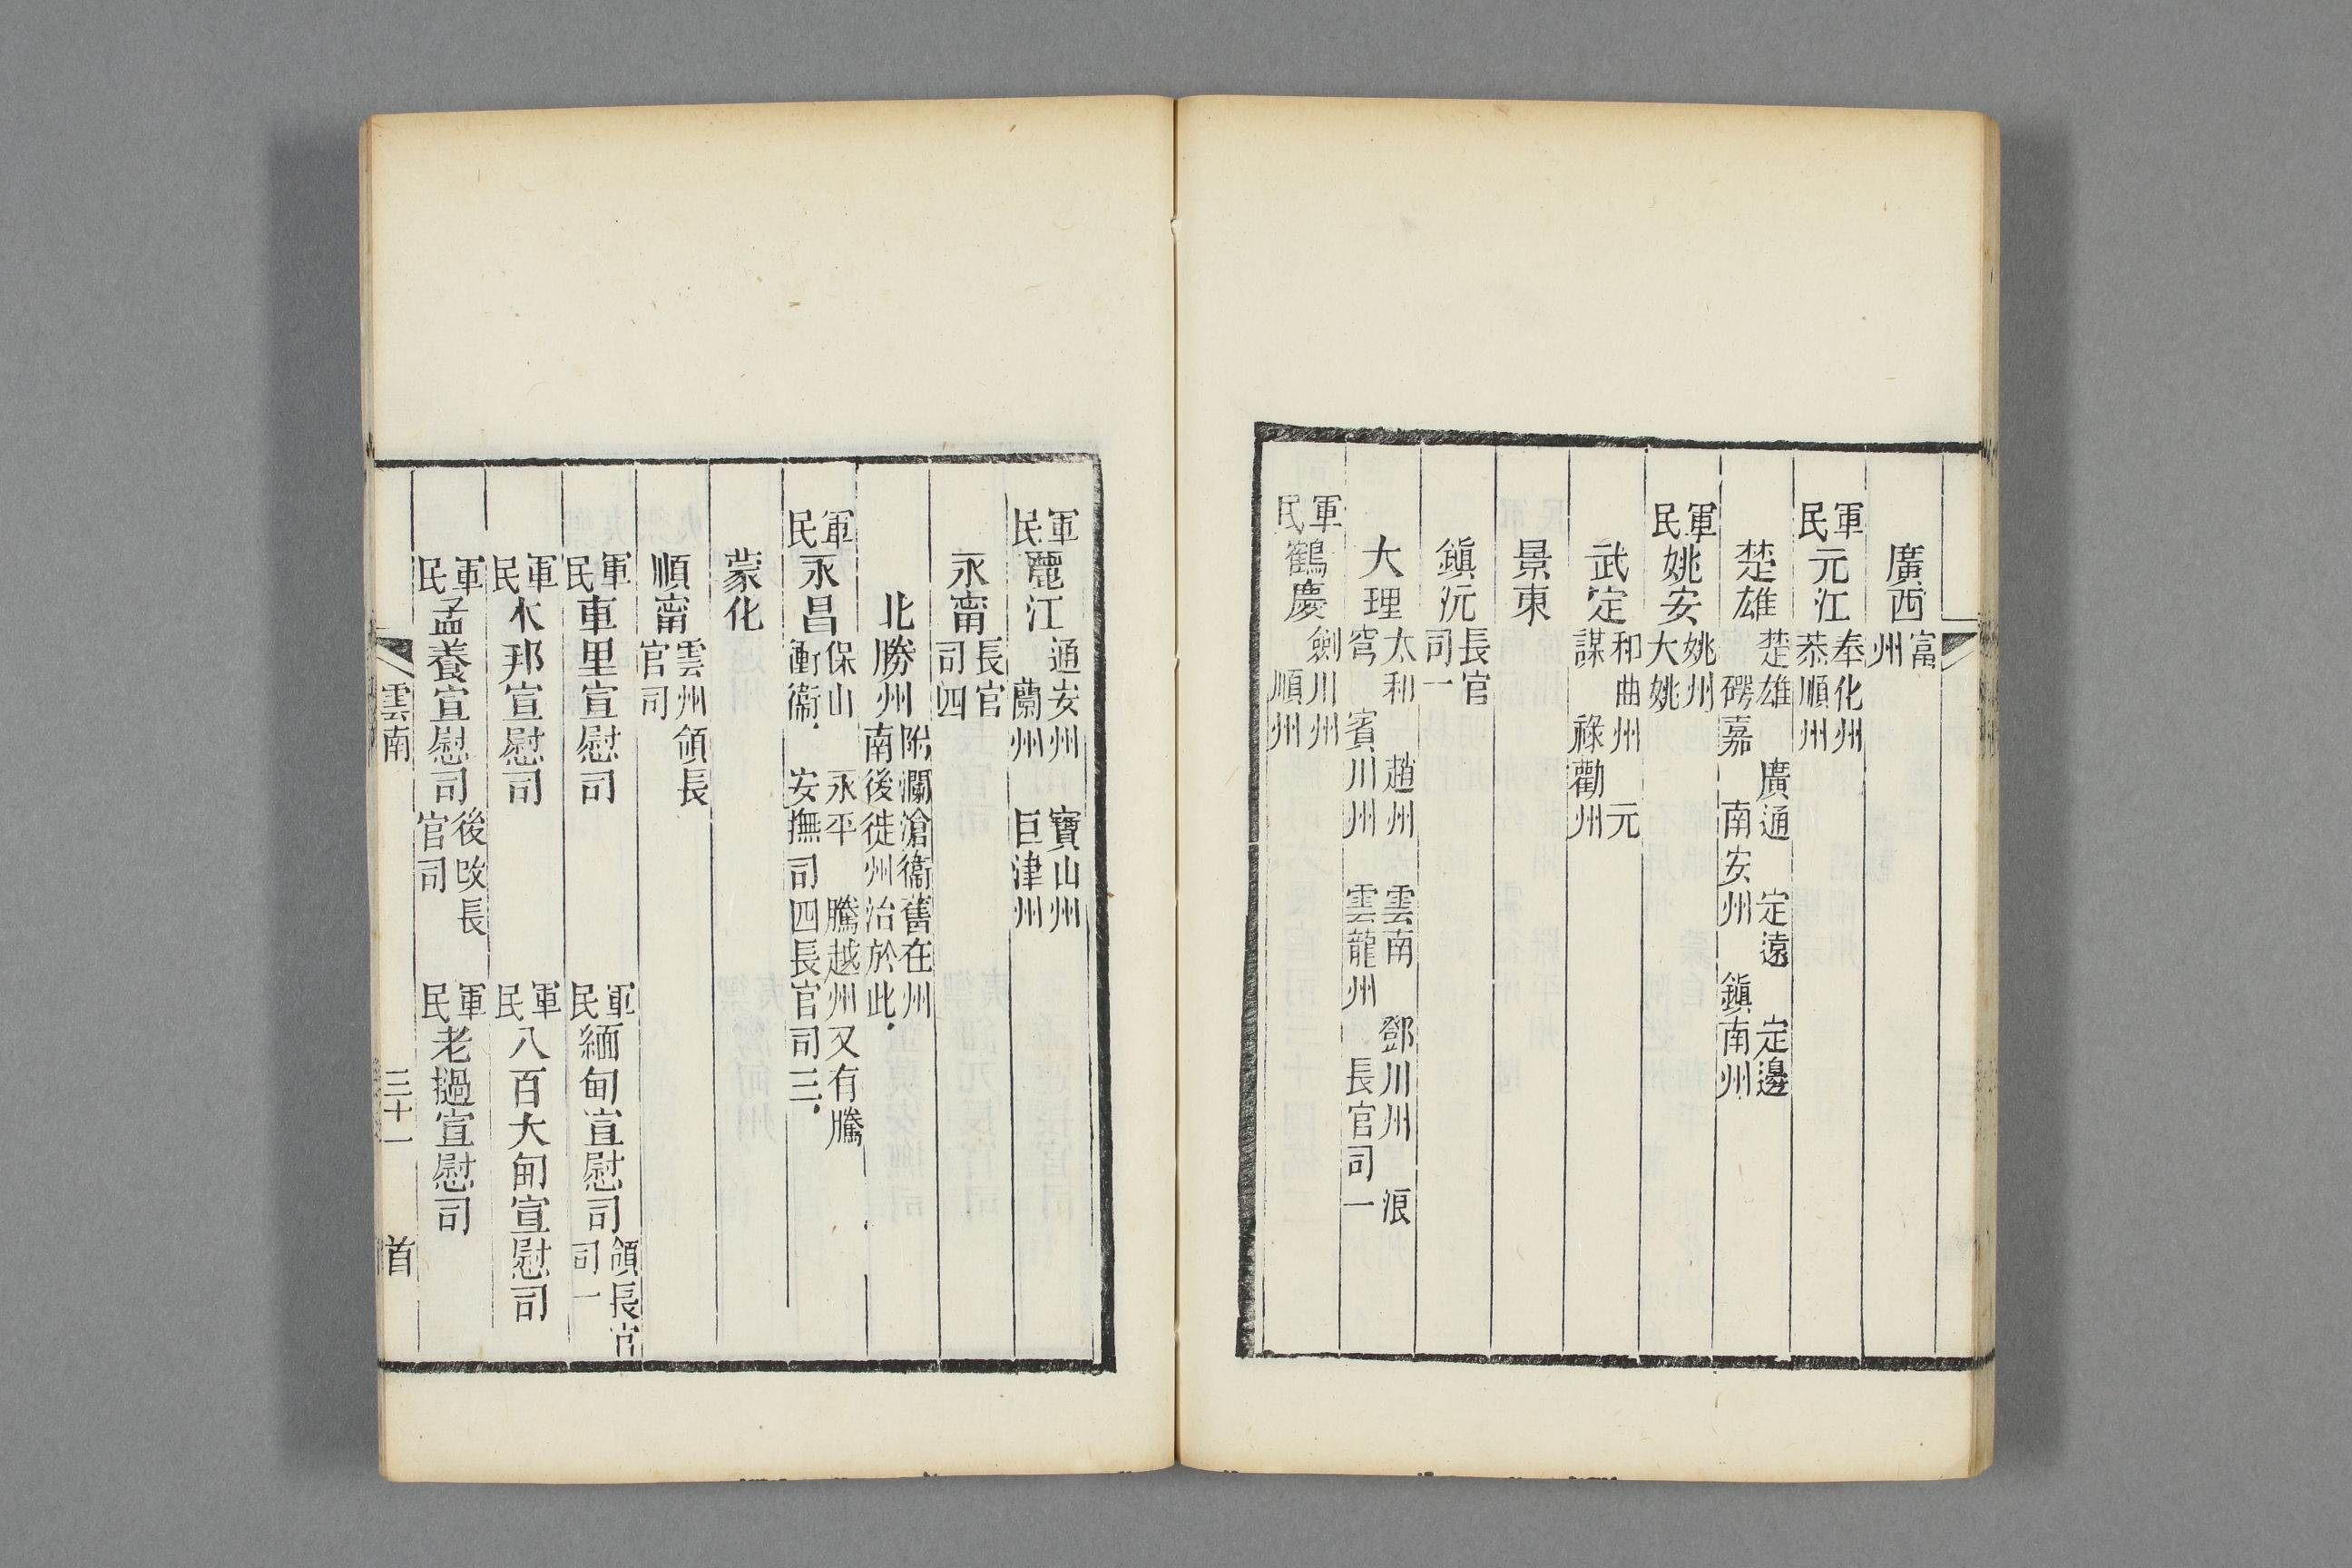 廣西富州
軍民元江奉化州恭順州
楚雄楚雄　廣通　定遠　定邊　㟧嘉　南安州　鎮南州
軍民姚安姚州大姚
武定和曲州　元謀　祿勸州
景東
鎮沅長官司一
大理太和　趙州　雲南　鄧川州　浪穹　賓川州　雲龍州　長官司一
軍民鶴慶劍川州順州
軍民麗江通安州　寶山州　蘭州　巨津州
永甯長官司四
北勝州附瀾滄衞舊在州南後徙州治於此
軍民永昌保山　永平　騰越州又有騰衝衞　安撫司四長官司三
蒙化
順甯雲州領長官司
軍民車里宣慰司　軍民緬甸宣慰司領長官司一
軍民木邦宣慰司　軍民八百大甸宣慰司
軍民孟養宣慰司後改長官司　軍民老撾宣慰司
雲南　三十一　首